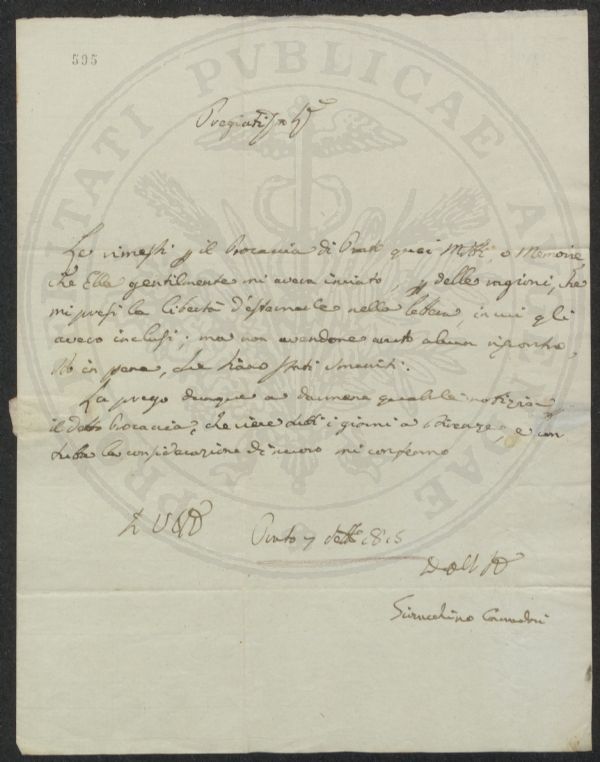 595
PROSPERITATI PVBLICAE AVGENDAE
Le rimessi p il Procaccia di Prato quei Mss: o Memorie,
che Ella gentilmente mi aveva inviato, p delle ragioni, che
mi presi la libertà d'esternarle nella lettera, in cui gli
avevo inclusi; ma non avendone avuto alcun riscontro,
sto in pena, che siano stati smarriti.
La prego dunque a darmene qualche notizia
il detto Procaccia, che viene tutti i giorni a Firenze, e con
tutta la considerazione di nuovo mi confermo
Prato 7 1815